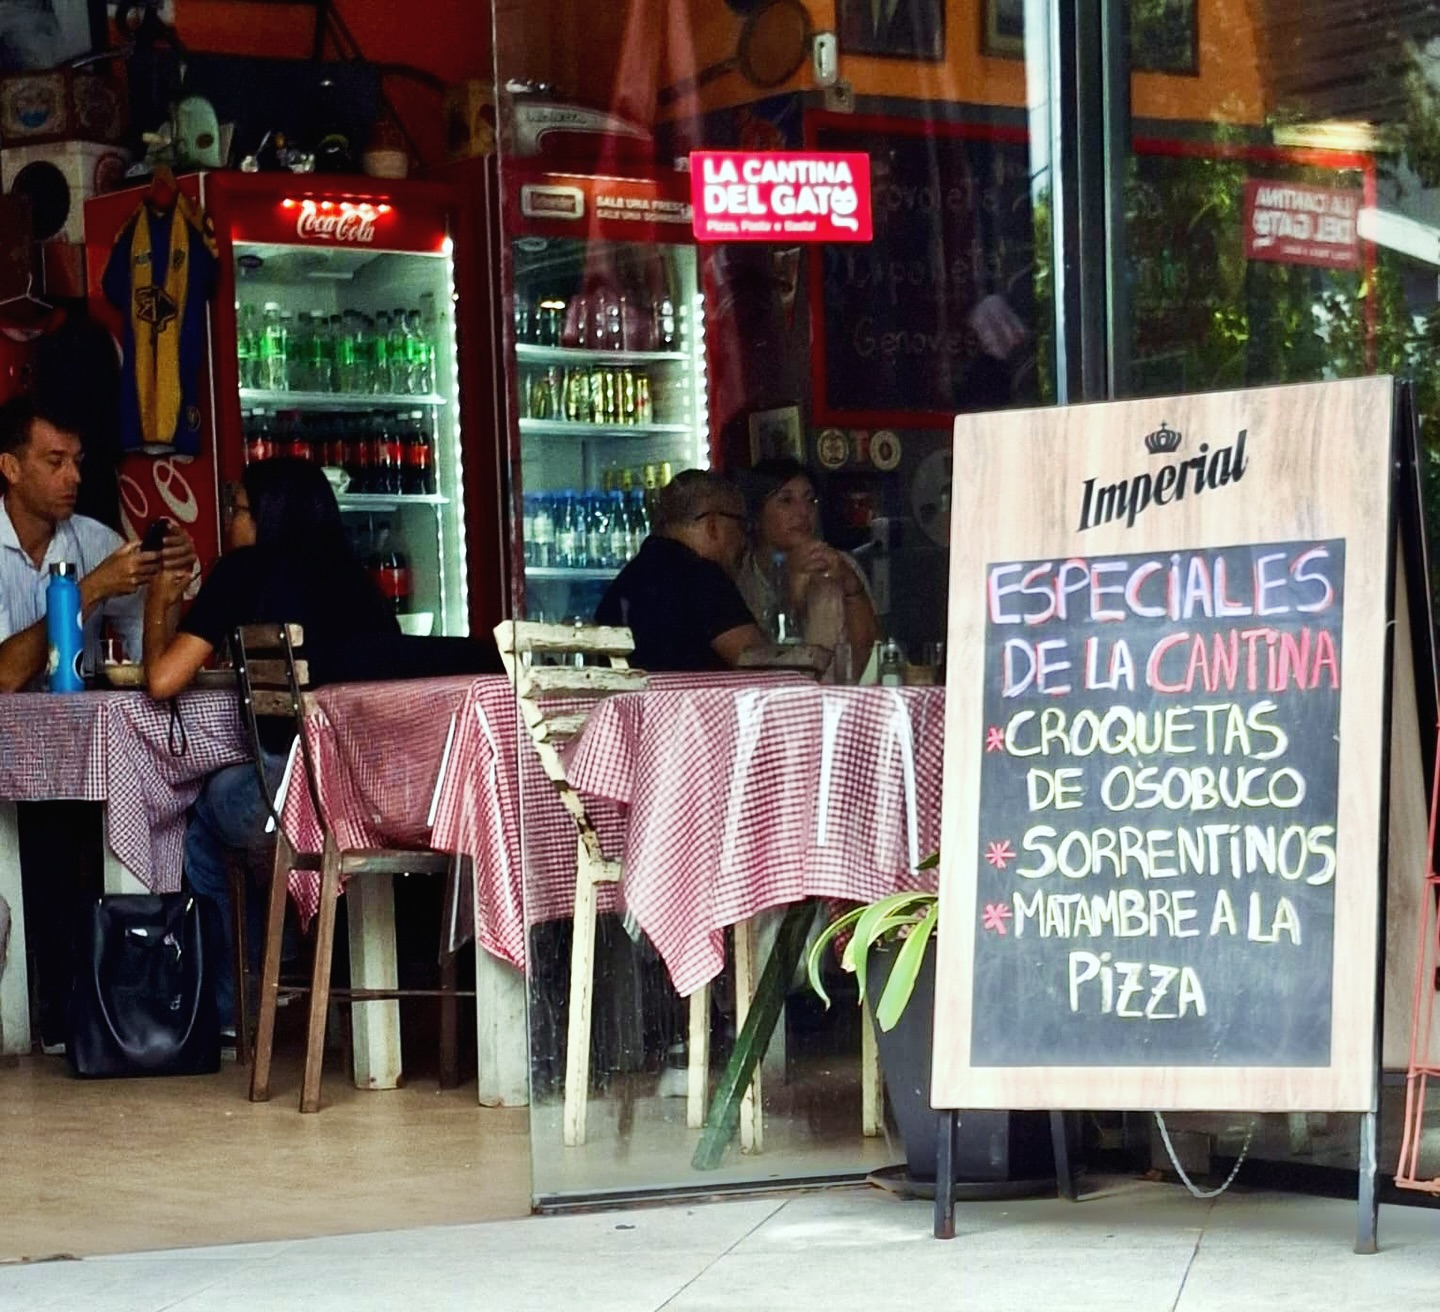 Coca-Cola
LA CANTINA
DEL GATO
Pizza, Pasta e Basta!
Imperial
ESPECiALES
DE LA CANTiNA
*CROQUETAS
DE OSOBUCO
*SORRENTiNOS
*MATAMBRE A LA
PiZZA
LA CANTINA
DEL GATO